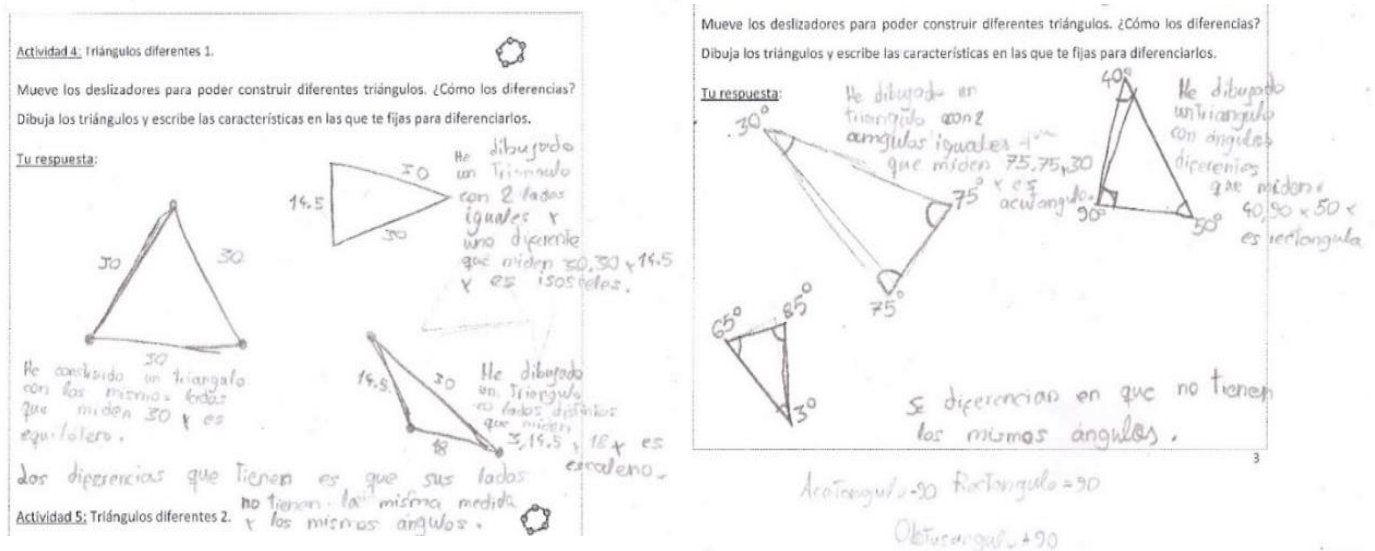 Actividad 4: Triángulos diferentes 1.
Mueve los deslizadores para poder construir diferentes triángulos. ¿Cómo los diferencias?
Dibuja los triángulos y escribe las características en las que te fijas para diferenciarlos.
Tu respuesta:
30
30
30
He construido un triangulo
con los mismos lados
que miden 30 y es
equilatero.
14.5
30
30
He dibujado
un Triangulo
con 2 lados
iguales y
uno diferente
que miden 30,30 y 14.5
y es isosceles.
14.5
30
18
He dibujado
un Triangulo
lados distintos
que miden
14.5, 18 y es
escaleno.
Las diferencias que Tienen es que sus lados
no tienen la misma medida
y los mismos angulos.
Actividad 5: Triángulos diferentes 2.
Mueve los deslizadores para poder construir diferentes triángulos. ¿Cómo los diferencias?
Dibuja los triángulos y escribe las características en las que te fijas para diferenciarlos.
Tu respuesta:
30°
75°
75°
He dibujado un
triangulo con 2
amgulos iguales
que miden 75,75,30
y es
acutangulo.
40°
90°
50°
He dibujado
un Triangulo
con ángulos
diferentes
que miden
40,90 y 50 y
es rectangulo
65°
85°
3°
Se diferencian en que no tienen
los mismos ángulos.
3
Acotangulo-90 Rectangulo=90
Obtusangulo+90